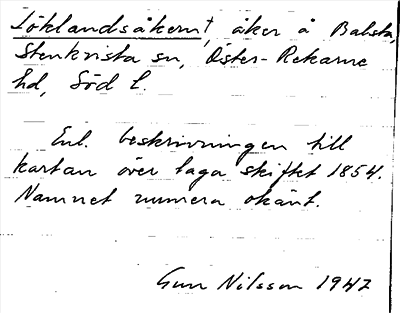 Löklandsåkern†, åker å Balsta,
Stenkvista sn, Öster-Rekarne
hd, Söd l.
Enl. beskrivningen till
kartan över laga skiftet 1854.
Namnet numera okänt.
Gun Nilsson 1947